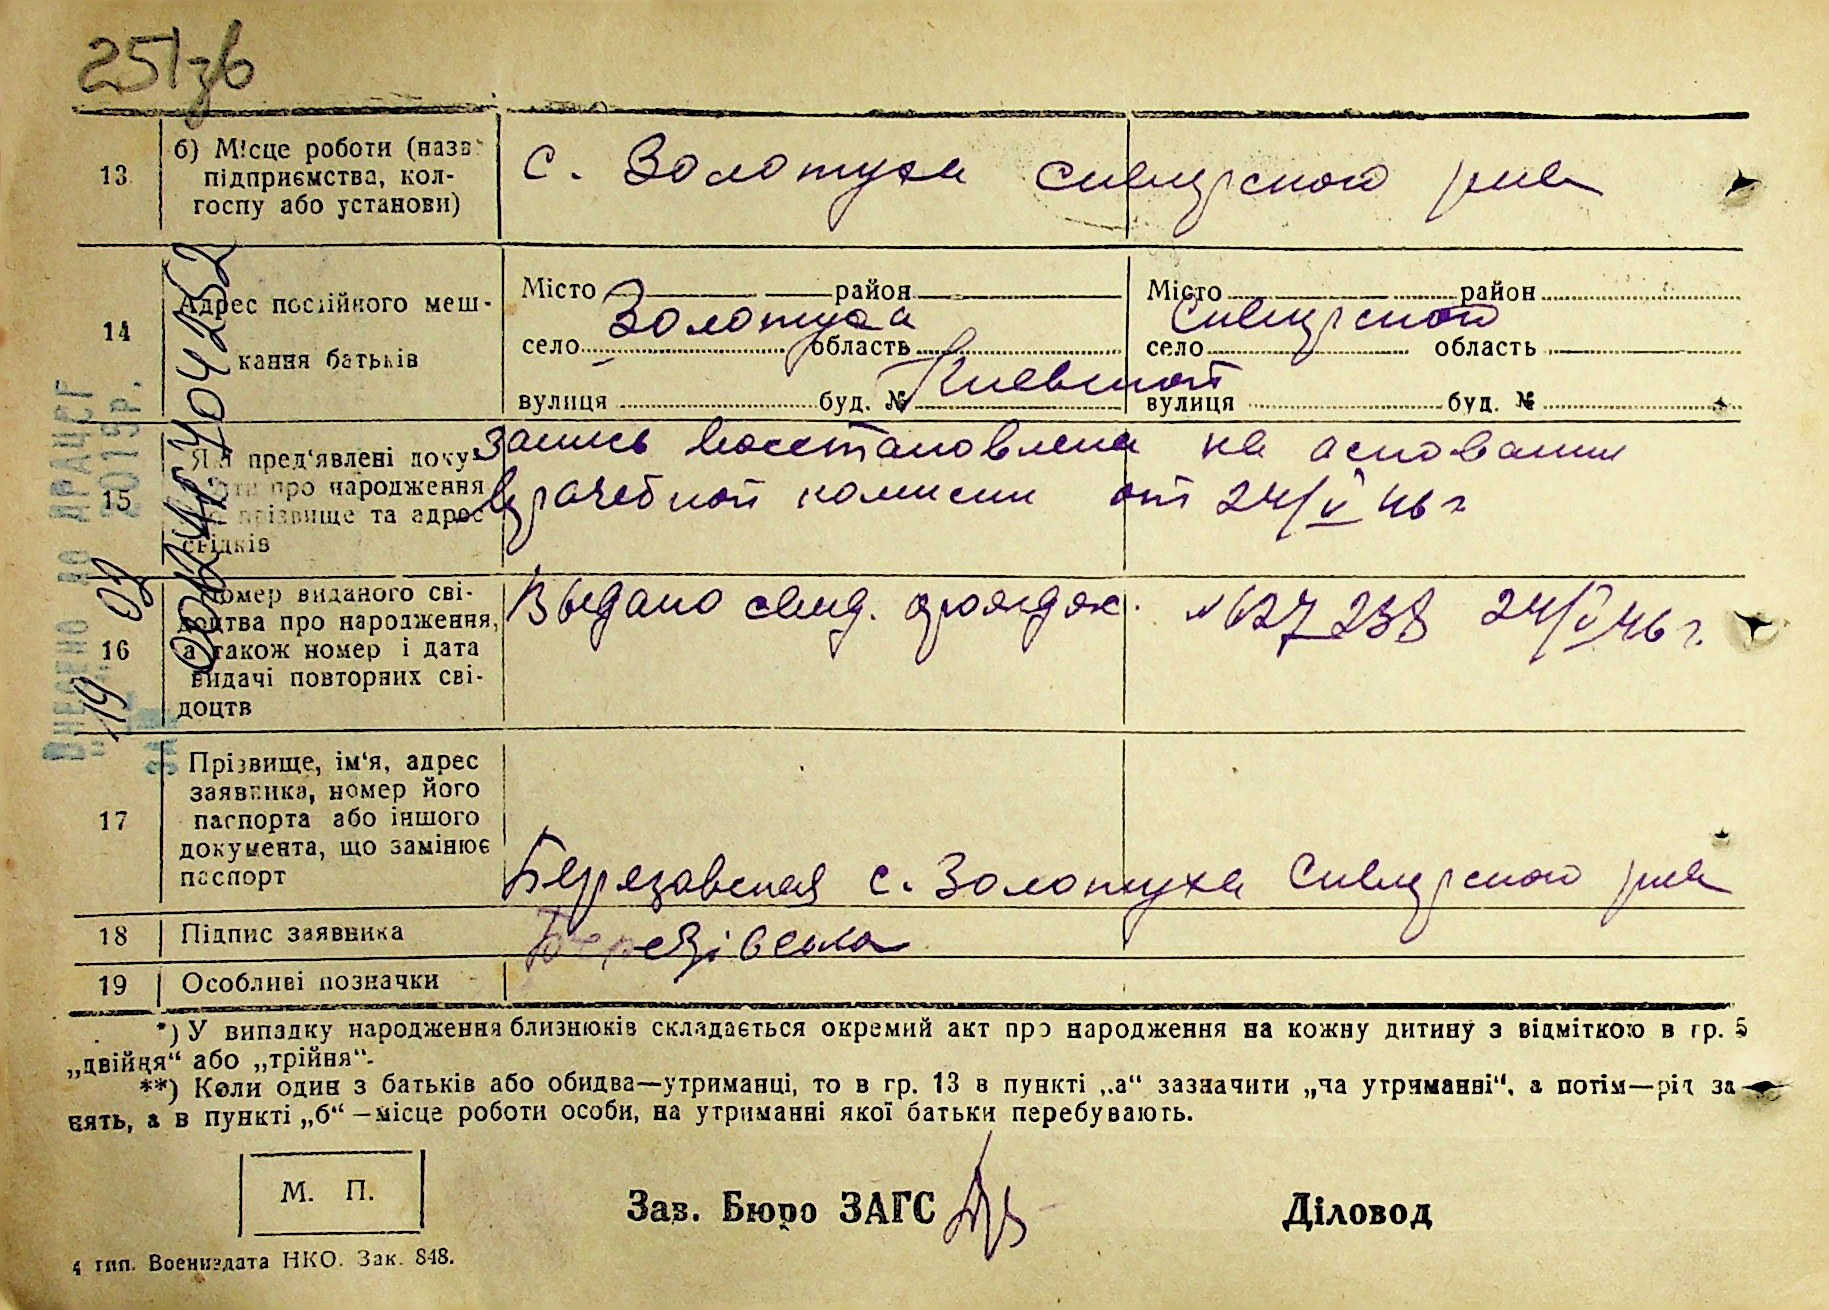 251зв
13
б) Місце роботи (назв
підприємства, кол-
госпу або установи)
с. Золотуха Сквирского р-на
14
Адрес постійного меш-
кання батьків
Місто район
Золотуха
село область
Киевской
вулиця буд. №
Місто район
Сквирского
село область
вулиця буд. №
15
пред'явлені доку-
про народження
прізвище та адрес
свідків
запись восстановлена на основании
врачебной комисии от 24/V 46 г
16
номер виданого сві-
доцтва про народження,
а також номер і дата
видачі повторних сві-
доцтв
Выдано свид. о рожден. №627238 24/V 46 г.
17
Прізвище, ім'я, адрес
заявника, номер його
паспорта або іншого
документа, що замінює
паспорт
Березовская с. Золотуха Сквирского р-на
18
Підпис заявника
Березівська
19
Особливі позначки
*) У випадку народження близнюків складається окремий акт про народження на кожну дитину з відміткою в гр. 5
„двійня“ або „трійня“.
**) Коли один з батьків або обидва—утриманці, то в гр. 13 в пункті „а“ зазначити „на утриманні“, а потім—рід за
нять, а в пункті „б“—місце роботи особи, на утриманні якої батьки перебувають.
М. П.
Зав. Бюро ЗАГС
Діловод
4 тип. Воениздата НКО. Зак. 848.
Внесено до ДРАЦСГ
19 03 2019р.